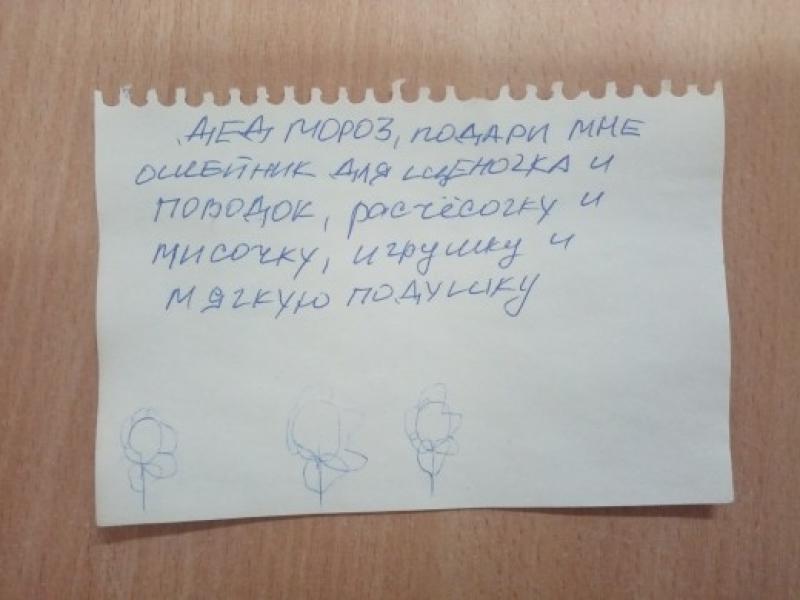 ДЕД МОРОЗ, ПОДАРИ МНЕ
ОШЕЙНИК ДЛЯ ЩЕНОЧКА И
ПОВОДОК, расчёсочку и
мисочку, игрушку и
мягкую подушку